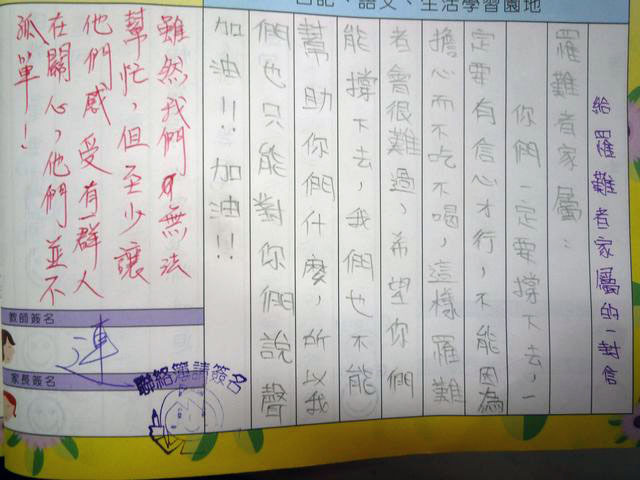 日記、語文、生活學習園地
給罹難者家屬的一封信
罹難者家屬：
你們一定要撐下去，一
定要有信心才行，不能因為
擔心而不吃不喝，這樣罹難
者會很難過，希望你們
能撐下去，我們也不能
幫助你們什麼，所以我
們也只能對你們說聲
加油!!加油!!
雖然我們無法
幫忙，但至少讓
他們感受有一群人
在關心，他們並不
孤單！
教師簽名
家長簽名
聯絡簿請簽名